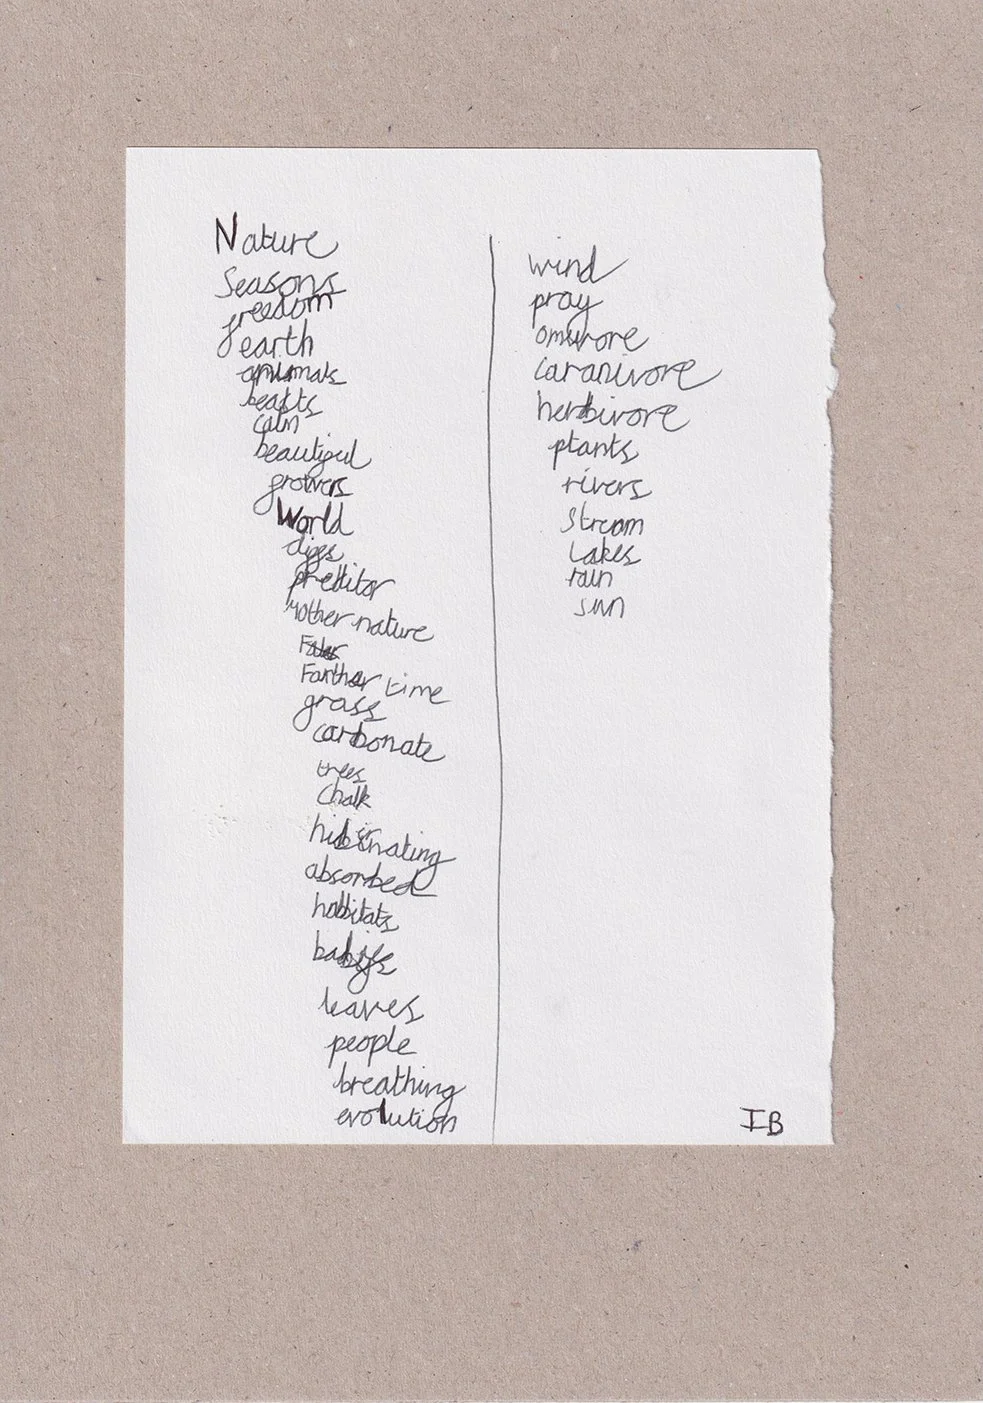 Nature
Seasons
freedom
earth
animals
beasts
calm
beautiful
growers
World
digs
preditor
Mother nature
Farther time
grass
carbonate
trees
Chalk
hibirnating
absorbed
habbitats
babies
leaves
people
breathing
evolution
wind
pray
omivore
caranivore
herbivore
plants
rivers
Stream
Lakes
rain
sun
IB